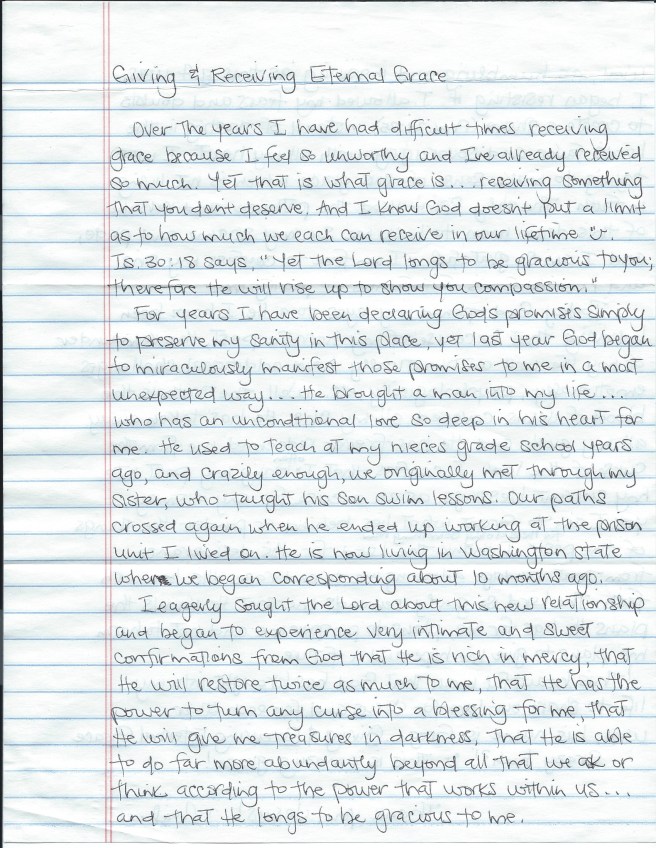 Giving & Receiving Eternal Grace
Over the years I have had difficult times receiving
grace because I feel so unworthy and I've already received
so much. Yet that is what grace is... receiving something
that you don't deserve. And I know God doesn't put a limit
as to how much we each can receive in our lifetime ☺.
Is. 30:18 says, "Yet the Lord longs to be gracious to you;
therefore He will rise up to show you compassion."
For years I have been declaring God's promises simply
to preserve my sanity in this place, yet last year God began
to miraculously manifest those promises to me in a most
unexpected way... He brought a man into my life...
who has an unconditional love so deep in his heart for
me. He used to teach at my nieces grade school years
ago, and crazily enough, we originally met through my
sister, who taught his son swim lessons. Our paths
crossed again when he ended up working at the prison
unit I lived on. He is now living in Washington State
when we began corresponding about 10 months ago.
I eagerly sought the Lord about this new relationship
and began to experience very intimate and sweet
confirmations from God that He is rich in mercy, that
He will restore twice as much to me, that He has the
power to turn any curse into a blessing for me, that
He will give me treasures in darkness, that He is able
to do far more abundantly beyond all that we ask or
think according to the power that works within us...
and that He longs to be gracious to me.